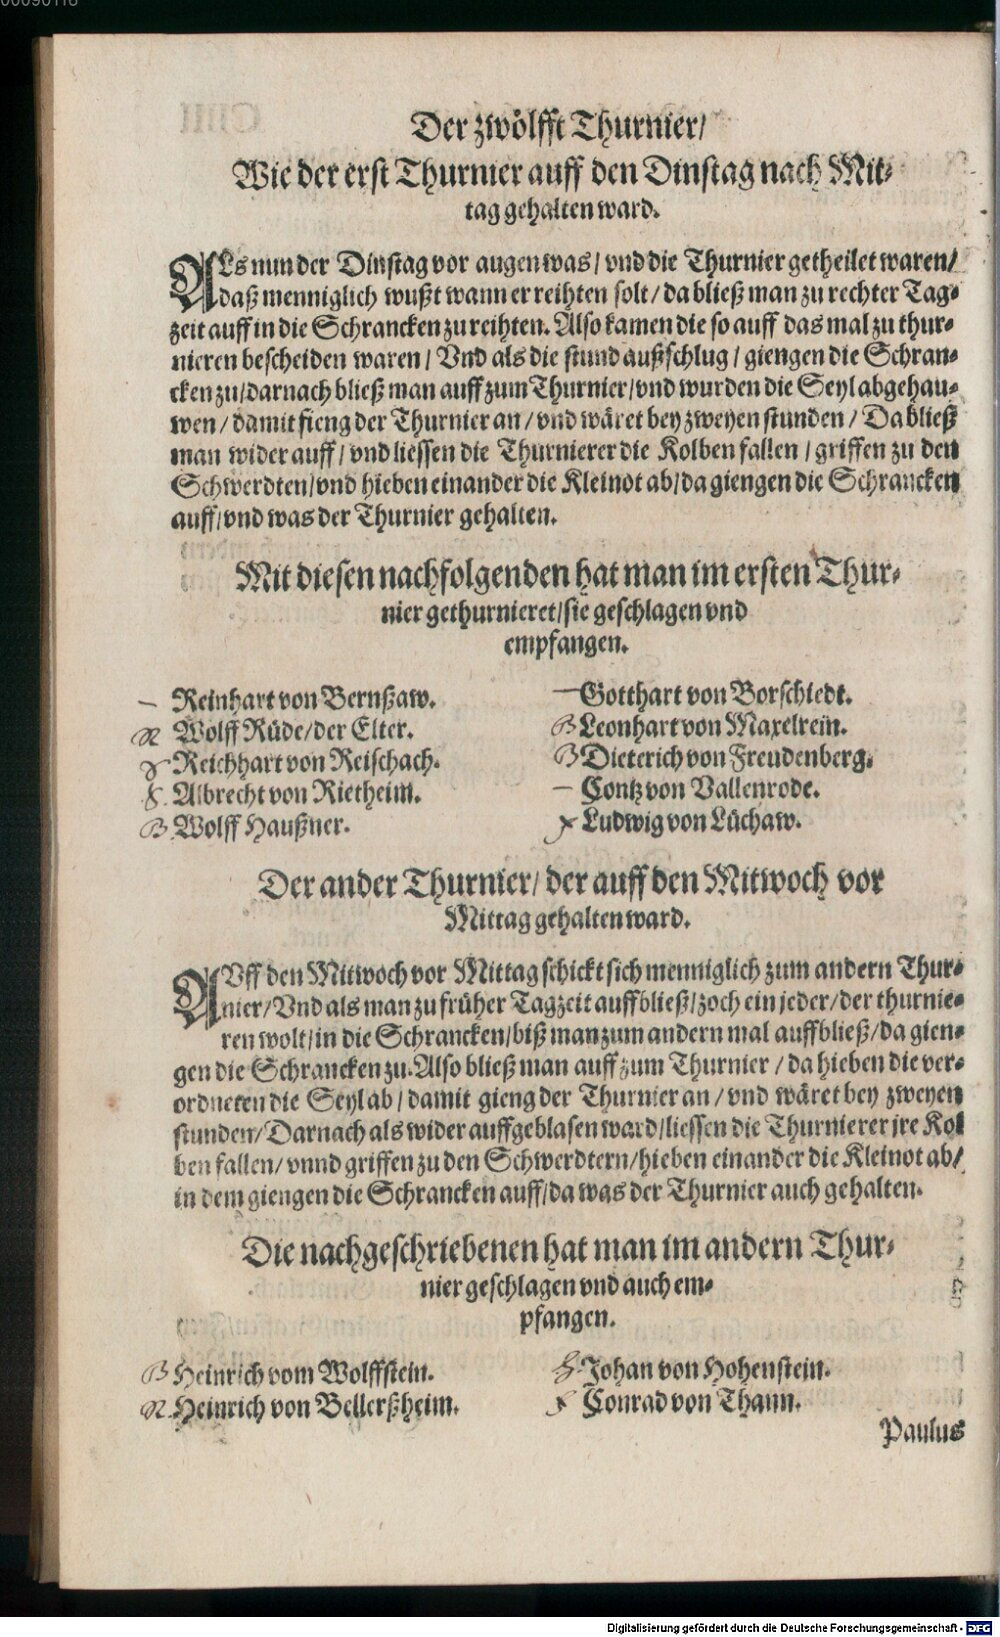 Der zwölfft Thurnier/
Wie der erst Thurnier auff den Dinstag nach Mit⸗
tag gehalten ward.
ALs nun der Dinstag vor augen was / vnd die Thurnier getheilet waren /
daß menniglich wußt wann er reihten solt / da bließ man zu rechter Tag⸗
zeit auff in die Schrancken zu reihten. Also kamen die so auff das mal zu thur⸗
nieren bescheiden waren / Vnd als die stund außschlug / giengen die Schran⸗
cken zu / darnach bließ man auff zum Thurnier / vnd wurden die Seyl abgehau⸗
wen / damit fieng der Thurnier an / vnd wäret bey zweyen stunden / Da bließ
man wider auff / vnd liessen die Thurnierer die Kolben fallen / griffen zu den
Schwerdten / vnd hieben einander die Kleinot ab / da giengen die Schrancken
auff / vnd was der Thurnier gehalten.
Mit diesen nachfolgenden hat man im ersten Thur⸗
nier gethurnieret / sie geschlagen vnd
empfangen.
— Reinhart von Bernßaw.
R Wolff Rüde / der Elter.
Reichhart von Reischach.
S. Albrecht von Rietheim.
B Wolff Haußner.
— Gotthart von Borschiedt.
B Leonhart von Maxelrein.
B Dieterich von Freudenberg.
— Contz von Vallenrode.
Ludwig von Lüchaw.
Der ander Thurnier / der auff den Mitwoch vor
Mittag gehalten ward.
AVff den Mitwoch vor Mittag schickt sich menniglich zum andern Thur⸗
nier / Vnd als man zu früher Tagzeit auffbließ / zoch ein jeder / der thurnie⸗
ren wolt / in die Schrancken / biß man zum andern mal auffbließ / da gien⸗
gen die Schrancken zu. Also bließ man auff zum Thurnier / da hieben die ver⸗
ordneten die Seyl ab / damit gieng der Thurnier an / vnd wäret bey zweyen
stunden / Darnach als wider auffgeblasen ward / liessen die Thurnierer jre Kol
ben fallen / vnnd griffen zu den Schwerdtern / hieben einander die Kleinot ab /
in dem giengen die Schrancken auff / da was der Thurnier auch gehalten.
Die nachgeschriebenen hat man im andern Thur⸗
nier geschlagen vnd auch em⸗
pfangen.
B Heinrich vom Wolffstein.
R. Heinrich von Bellerßheim.
Johan von Hohenstein.
Conrad von Thann.
Paulus
Digitalisierung gefördert durch die Deutsche Forschungsgemeinschaft - DFG